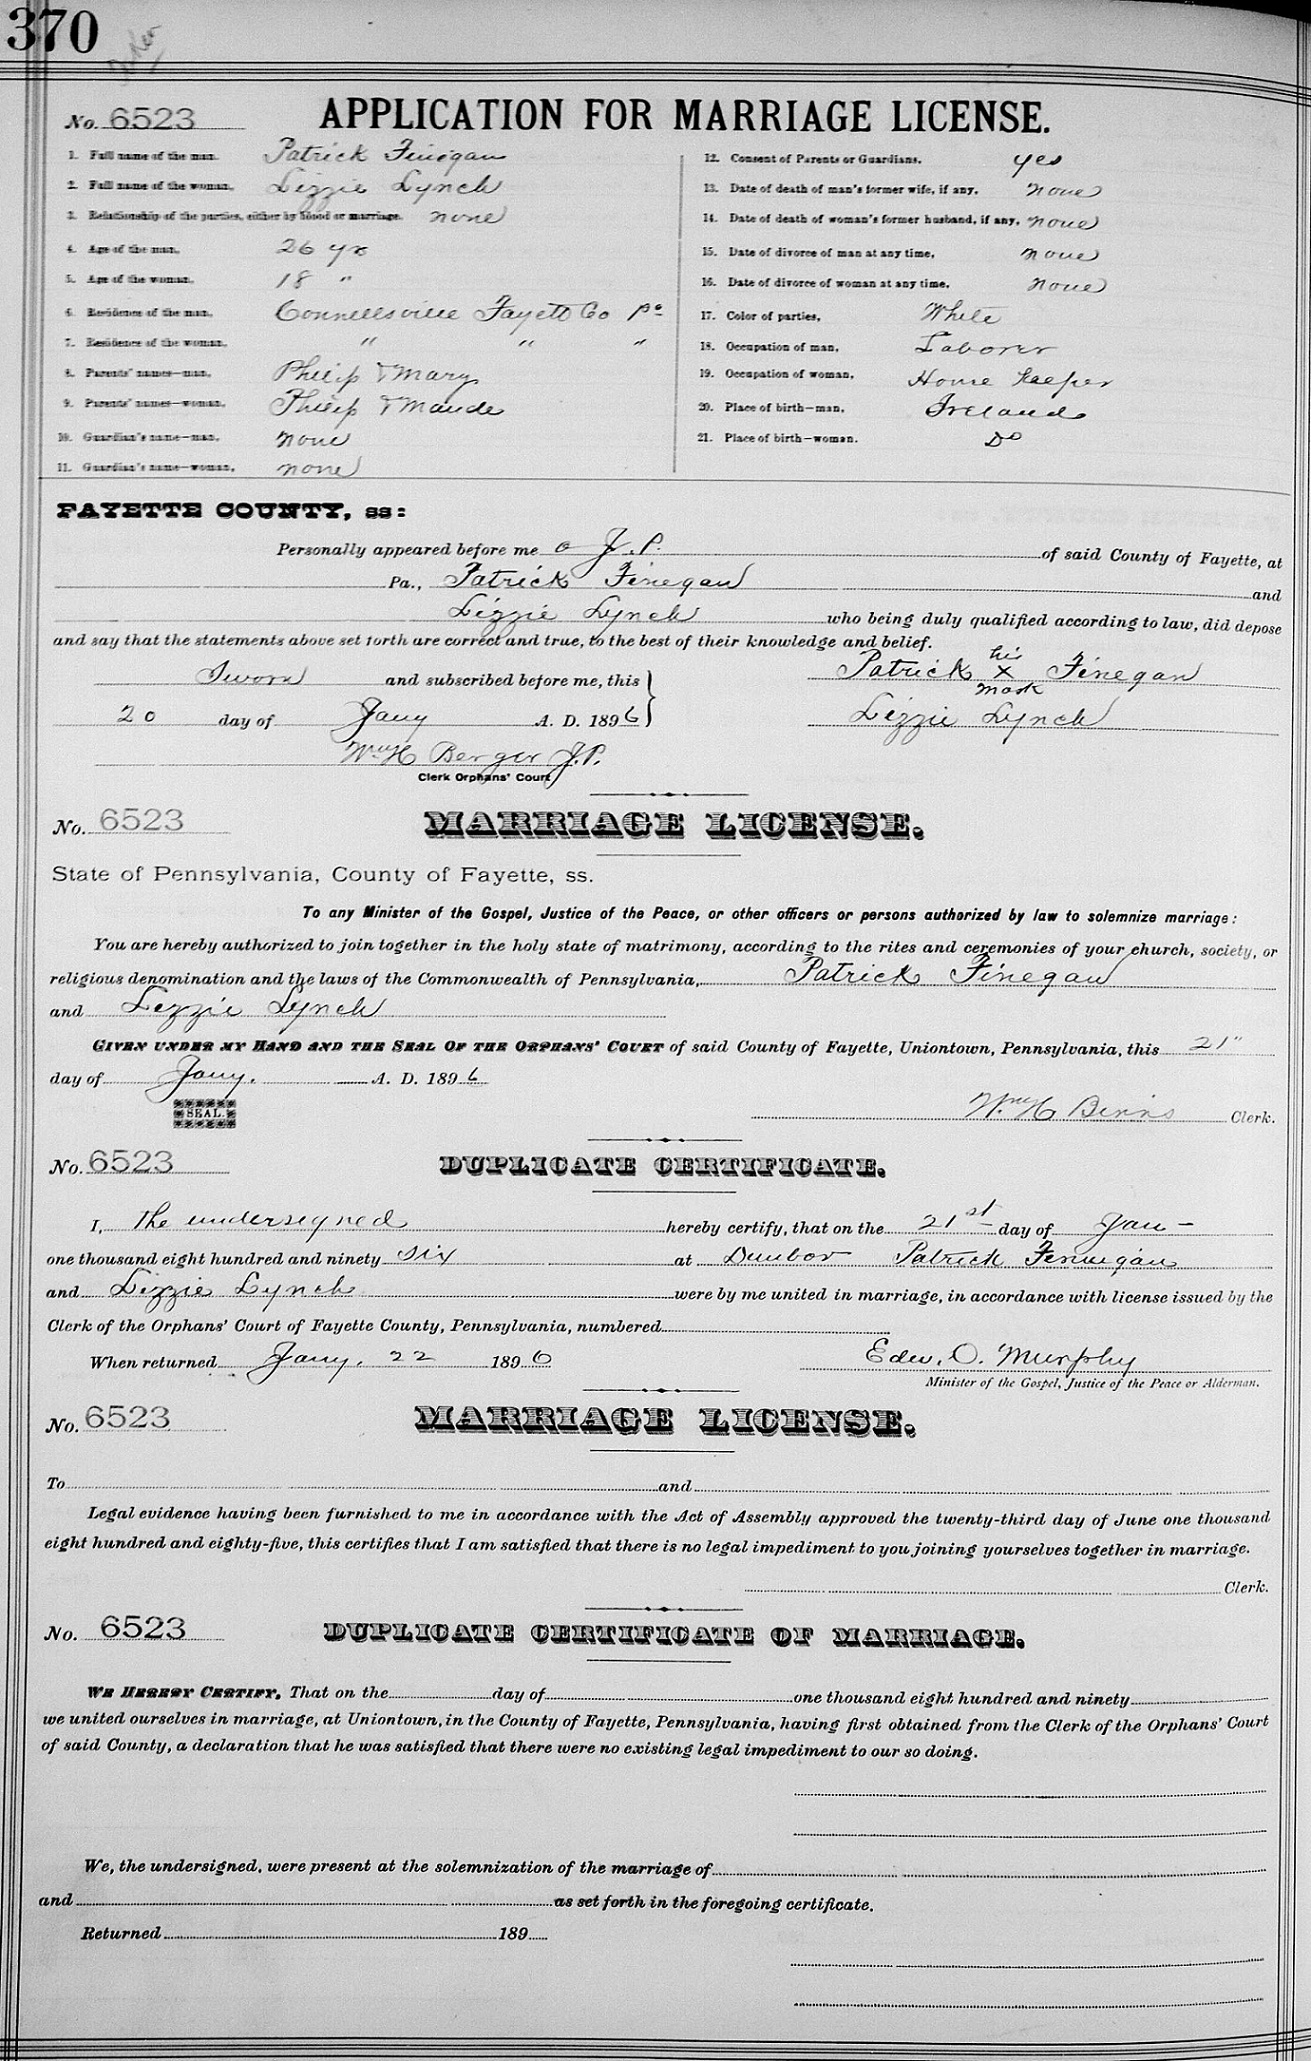 370
No. 6523 APPLICATION FOR MARRIAGE LICENSE.
1. Full name of the man. Patrick Finegan
2. Full name of the woman. Lizzie Lynch
3. Relationship of the parties, either by blood or marriage. none
4. Age of the man. 26 yrs
5. Age of the woman. 18 "
6. Residence of the man. Connellsville Fayett Co Pa
7. Residence of the woman. " " "
8. Parents' names—man. Philip & Mary
9. Parents' names—woman. Philip & Maude
10. Guardian's name—man. none
11. Guardian's name—woman. none
12. Consent of Parents or Guardians. yes
13. Date of death of man's former wife, if any. none
14. Date of death of woman's former husband, if any. none
15. Date of divorce of man at any time. none
16. Date of divorce of woman at any time. none
17. Color of parties. White
18. Occupation of man. Laborer
19. Occupation of woman. House Keeper
20. Place of birth—man. Ireland
21. Place of birth—woman. Do
FAYETTE COUNTY, ss:
Personally appeared before me a J. P. of said County of Fayette, at
Pa., Patrick Finegan and
Lizzie Lynch who being duly qualified according to law, did depose
and say that the statements above set forth are correct and true, to the best of their knowledge and belief.
Sworn and subscribed before me, this Patrick his x mark Finegan
20 day of Jany A. D. 1896 Lizzie Lynch
Wm H Berger J.P.
Clerk Orphans' Court
No. 6523 MARRIAGE LICENSE.
State of Pennsylvania, County of Fayette, ss.
To any Minister of the Gospel, Justice of the Peace, or other officers or persons authorized by law to solemnize marriage:
You are hereby authorized to join together in the holy state of matrimony, according to the rites and ceremonies of your church, society, or
religious denomination and the laws of the Commonwealth of Pennsylvania, Patrick Finegan
and Lizzie Lynch
GIVEN UNDER MY HAND AND THE SEAL OF THE ORPHANS' COURT of said County of Fayette, Uniontown, Pennsylvania, this 21"
day of Jany. A. D. 1896
SEAL. Wm H Binns Clerk.
No. 6523 DUPLICATE CERTIFICATE.
I, the undersigned hereby certify, that on the 21st day of Jan—
one thousand eight hundred and ninety six at Dunbar Patrick Finnigan
and Lizzie Lynch were by me united in marriage, in accordance with license issued by the
Clerk of the Orphans' Court of Fayette County, Pennsylvania, numbered
When returned Jany. 22 1896 Edw. O. Murphy
Minister of the Gospel, Justice of the Peace or Alderman.
No. 6523 MARRIAGE LICENSE.
To and
Legal evidence having been furnished to me in accordance with the Act of Assembly approved the twenty-third day of June one thousand
eight hundred and eighty-five, this certifies that I am satisfied that there is no legal impediment to you joining yourselves together in marriage.
Clerk.
No. 6523 DUPLICATE CERTIFICATE OF MARRIAGE.
WE HEREBY CERTIFY, That on the day of one thousand eight hundred and ninety
we united ourselves in marriage, at Uniontown, in the County of Fayette, Pennsylvania, having first obtained from the Clerk of the Orphans' Court
of said County, a declaration that he was satisfied that there were no existing legal impediment to our so doing.
We, the undersigned, were present at the solemnization of the marriage of
and as set forth in the foregoing certificate.
Returned 189